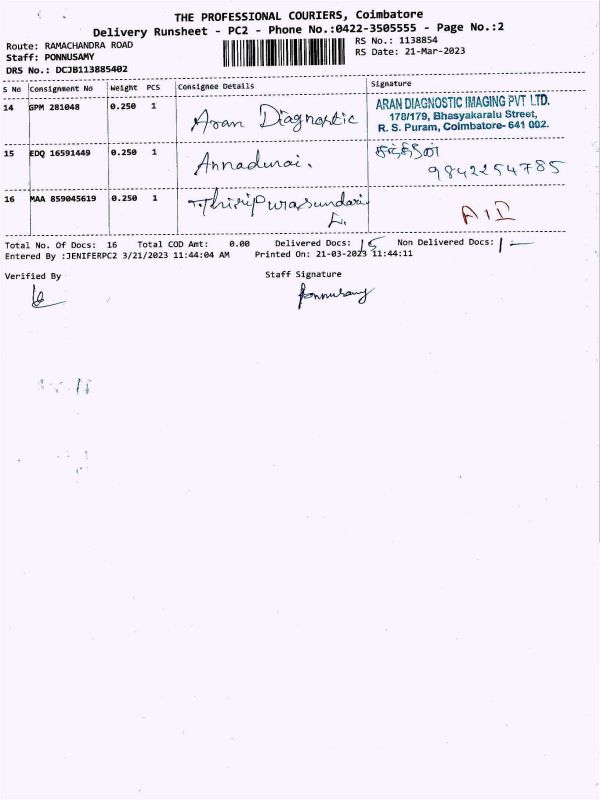 THE PROFESSIONAL COURIERS, Coimbatore
Delivery Runsheet - PC2 - Phone No.:0422-3505555 - Page No.:2
Route: RAMACHANDRA ROAD
RS No.: 1138854
Staff: PONNUSAMY
RS Date: 21-Mar-2023
DRS No.: DCJB113885402
S No Consignment No Weight PCS Consignee Details Signature
14 GPM 281048 0.250 1 Aran Diagnostic
ARAN DIAGNOSTIC IMAGING PVT LTD.
178/179, Bhasyakaralu Street,
R. S. Puram, Coimbatore- 641 002.
15 EDQ 16591449 0.250 1 Annadurai.
9842254785
16 MAA 859045619 0.250 1 Thiripurasundari
Total No. Of Docs: 16 Total COD Amt: 0.00 Delivered Docs: 15 Non Delivered Docs: 1
Entered By :JENIFERPC2 3/21/2023 11:44:04 AM Printed On: 21-03-2023 11:44:11
Verified By Staff Signature
Ponnusamy